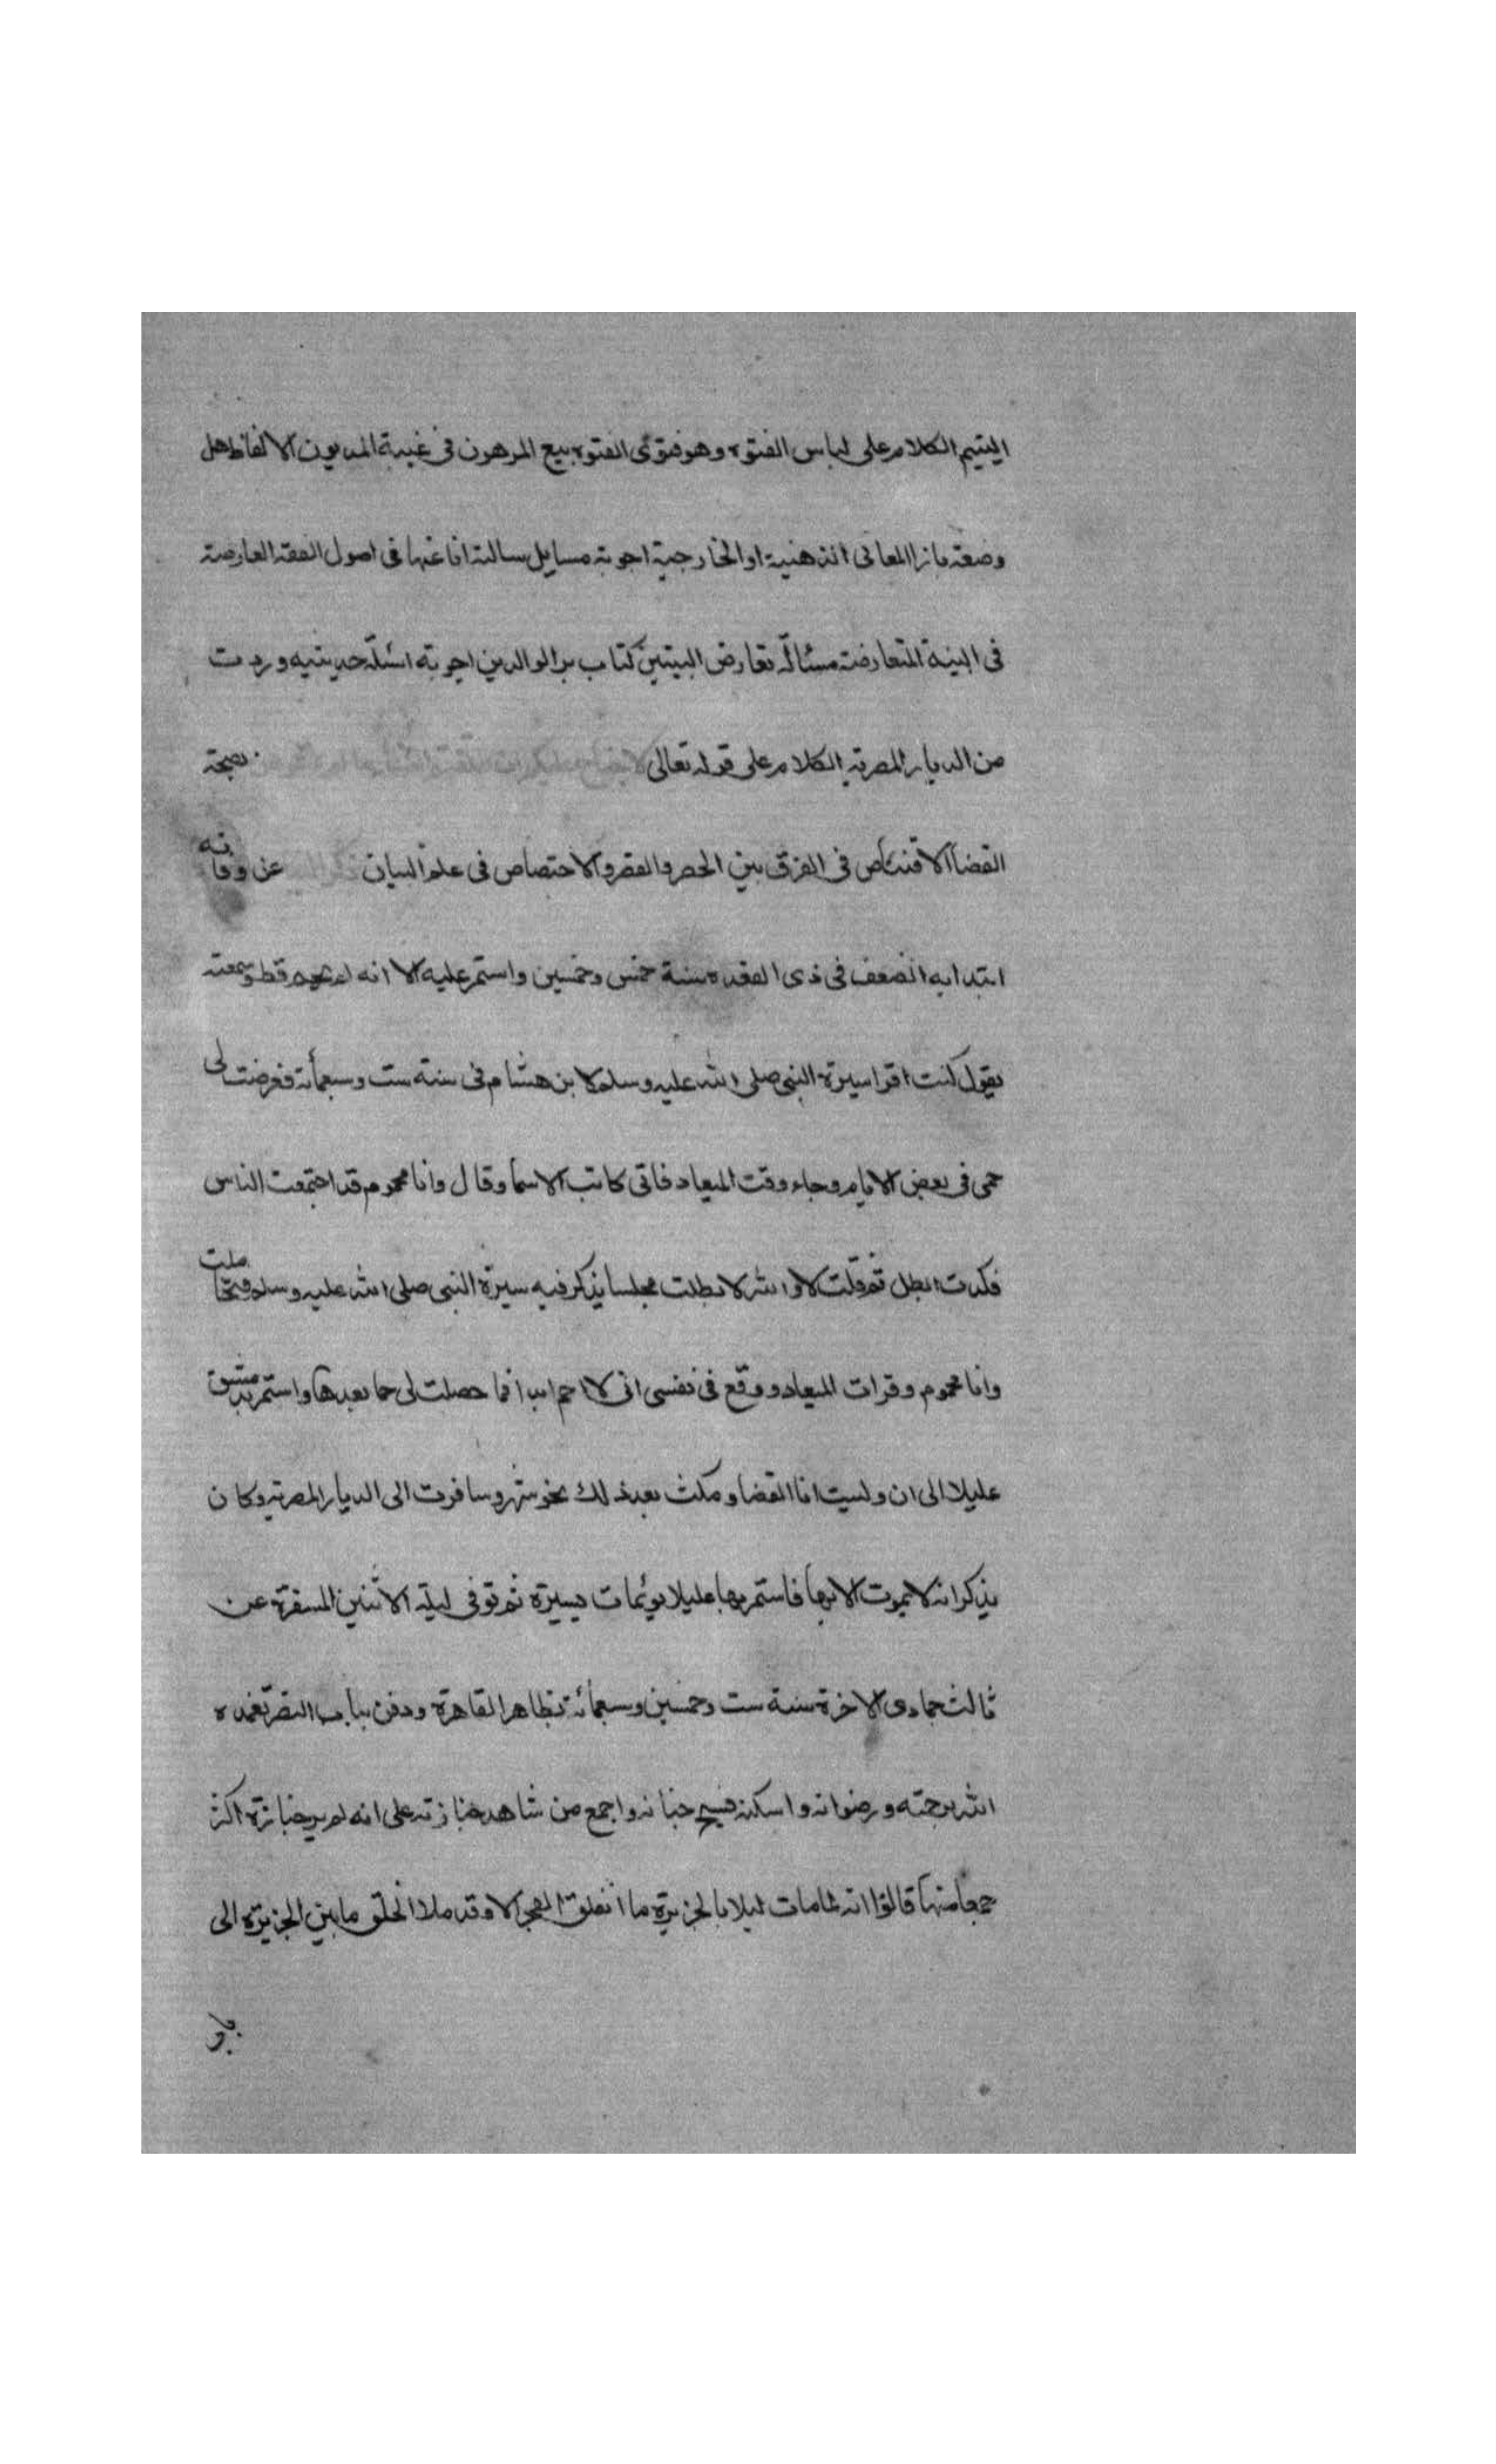 اليتيم الكلام على لباس الفتوه وهو فتوى الفتوه بيع المرهون فى غيبة المديون الالفاظ هل
وضعت بازا المعانى الذهنية او الخارجية اجوبة مسايل سالته انا عنها فى اصول الفقه العارضة
فى البينة المتعارضة مسئالة تعارض البينتين كتاب بر الوالدين اجوبة اسئلة حديثيه وردت
من الديار المصرية الكلام على قوله تعالى لا جناح عليكم ان طلقتم النسا نصيحة
القضاا الاقتناص فى الفرق بين الحصر والقصر والاختصاص فى علم البيان عن وفاته
ابتدا به الضعف فى ذى القعده سنة خمس وخمسين واستمر عليه الا انه لم يحم قط وسمعته
يقول كنت اقرا سيرة النبى صلى الله عليه وسلم لابن هشام فى سنة ست وسبعمأئة فعرضت لى
حمى فى بعض الايام وجاء وقت الميعاد فاتى كاتب الاسما وقال وانا محموم قد اجتمعت الناس
فكدت ابطل ثم قلت لا والله لا بطلت مجلسا يذكر فيه سيرة النبى صلى الله عليه وسلم فتحاملت
وانا محموم وقرات الميعاد ووقع فى نفسى انى لا احم ابدا فما حصلت لى حما بعدها واستمر بدمشق
عليلا الى ان وليت انا القضا ومكث بعد ذلك نحو شهر وسافرت الى الديار المصريه وكان
يذكر انه لا يموت الا بها فاستمر بها عليلا يويمات يسيرة ثم توفى ليلة الاثنين المسفرة عن
ثالث جمادى الاخرة سنة ست وخمسين وسبعمائة بظاهر القاهرة ودفن بباب النصر تغمده
الله برحمته ورضوانه واسكنه فسيح جنانه واجمع من شاهد جنازته على انه لم ير جنازة اكثر
جمعا منها قالوا انه لما مات ليلا بالجزيرة ما انفلق الفجر الا وقد ملا الخلق ما بين الجزيرة الى